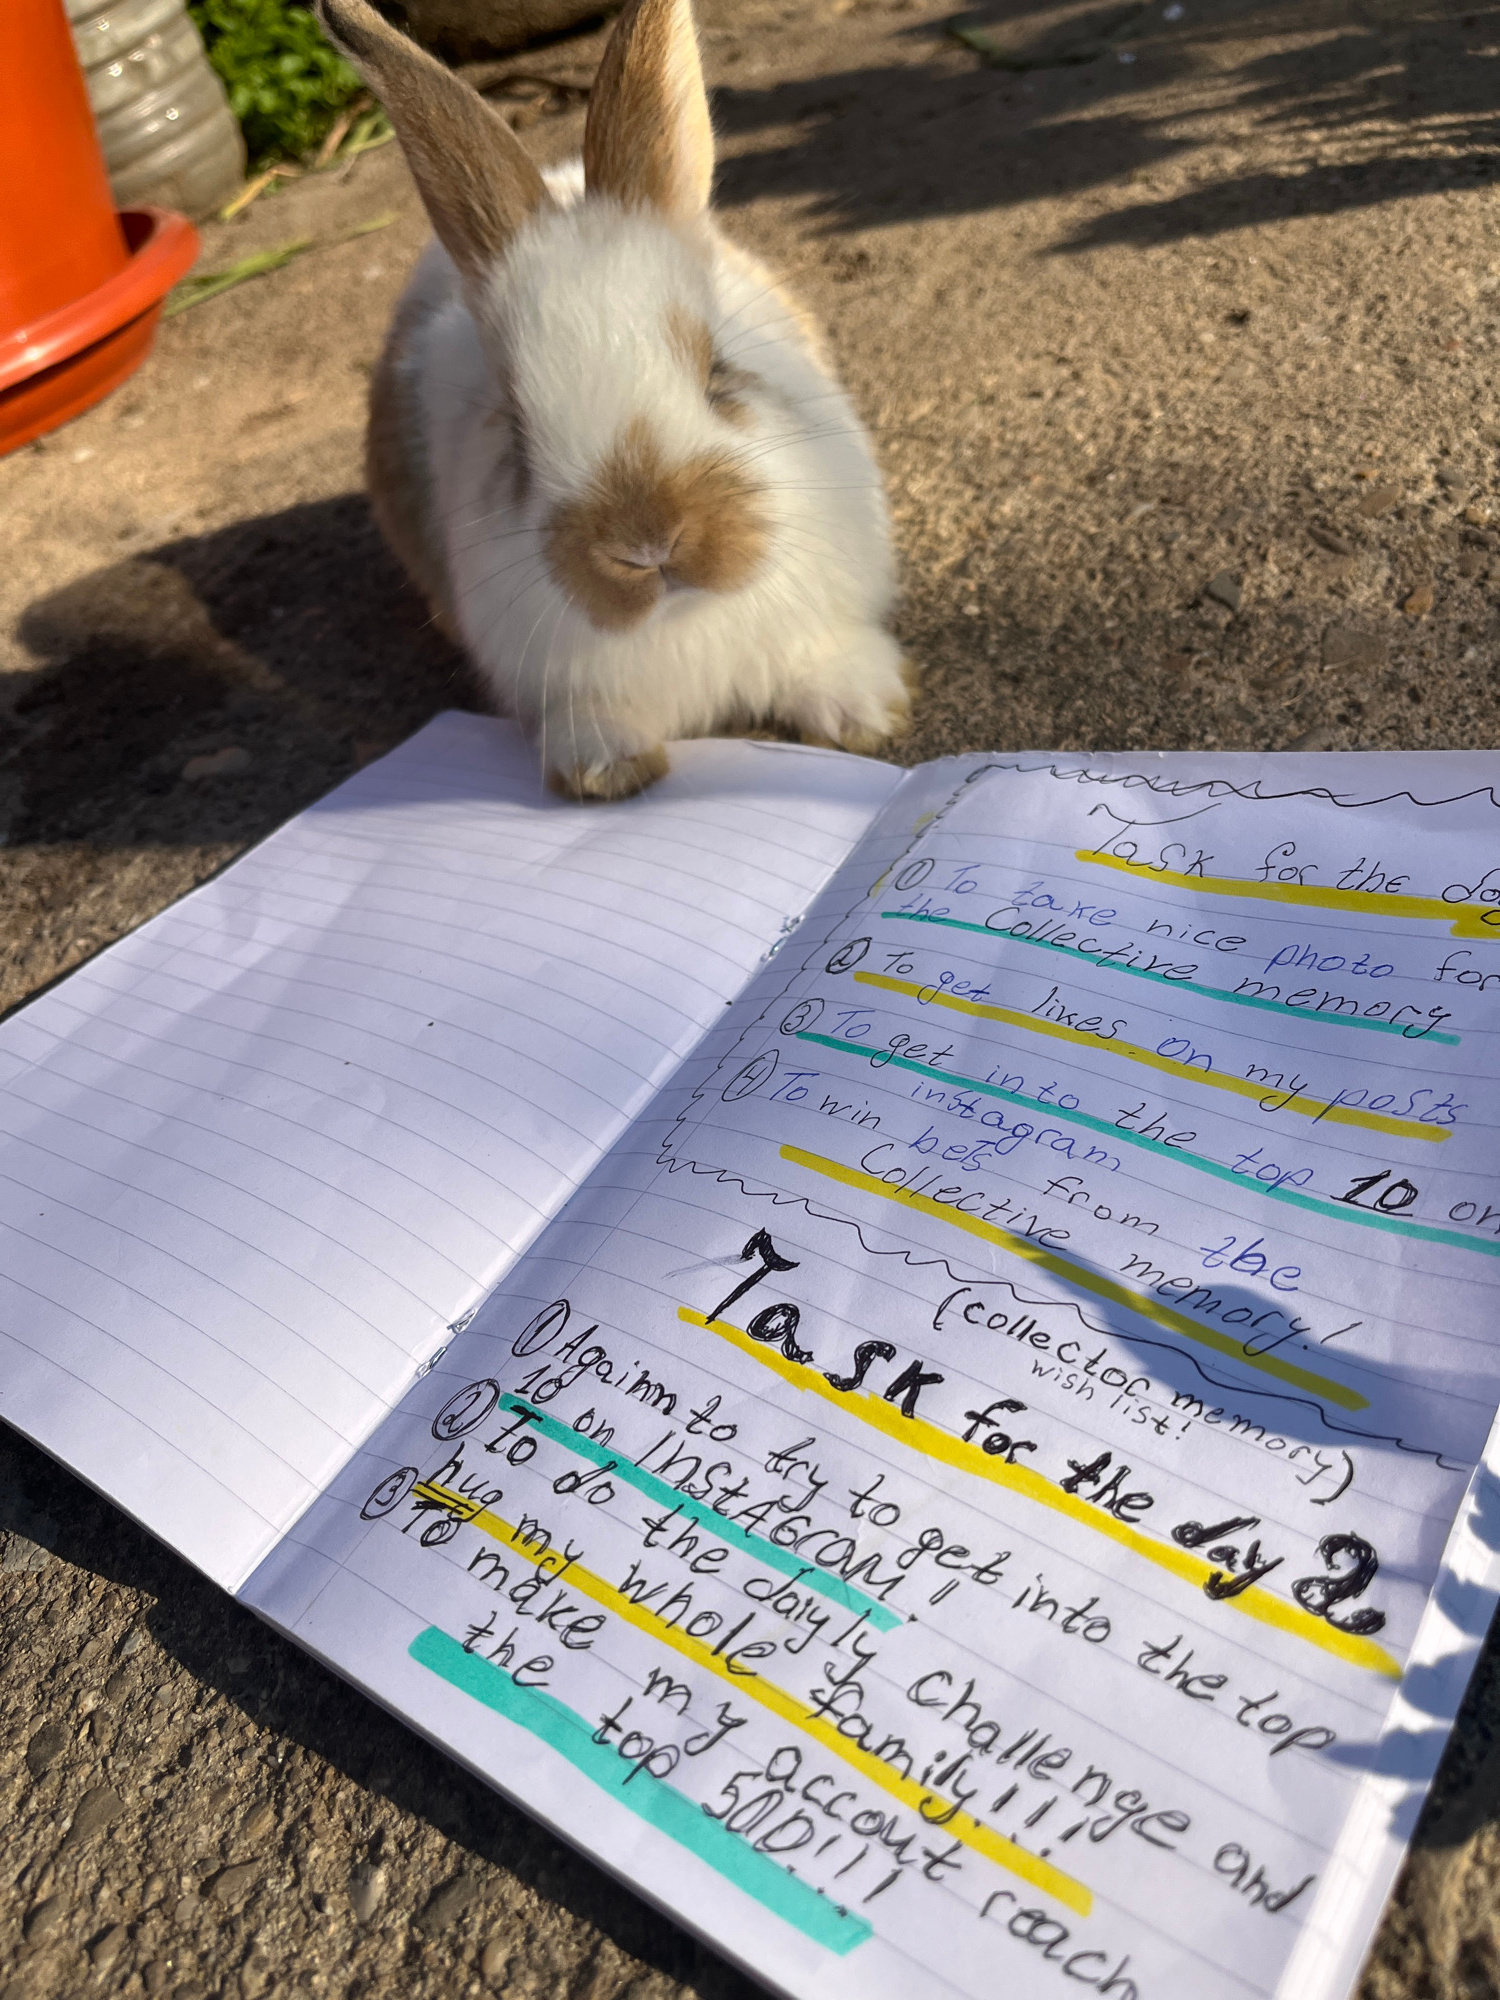 Task for the
① To take nice photo for
the Collective memory
② To get likes on my posts
③ To get into the top 10 on
instagram
④ To win bets from the
Collective memory!
(collector memory)
wish list!
Task for the day 2
① Againn to try to get into the top
10 on INStAGrAM!!
② To do the daiyly challenge and
hug my whole family!!!
③ To make my accout reach
the top 500!!!